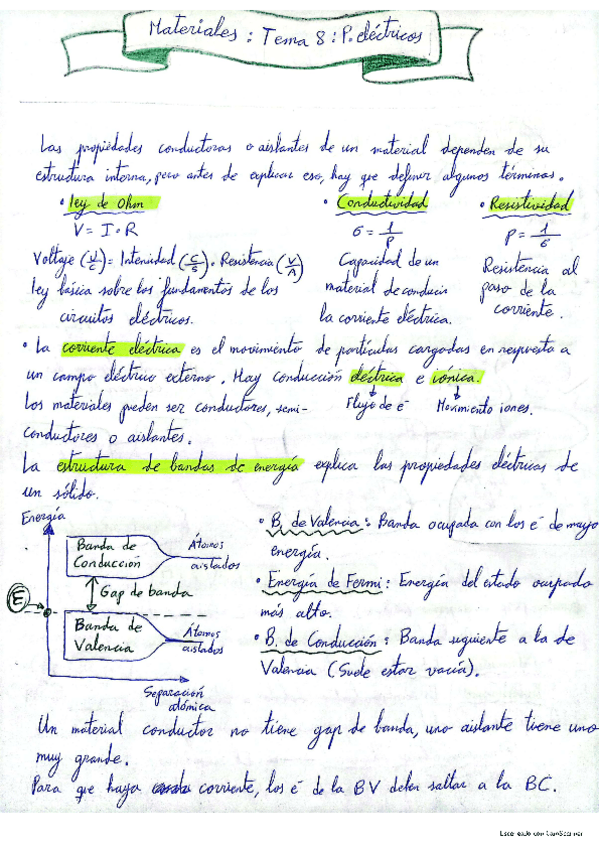 Materiales : Tema 8 : P. eléctricos
Las propiedades conductoras o aislantes de un material dependen de su
estructura interna, pero antes de explicar eso, hay que definir algunos términos.
• ley de Ohm
V = I · R
Voltaje (J/C) = Intensidad (C/s) · Resistencia (V/A)
ley básica sobre los fundamentos de los
circuitos eléctricos.
• Conductividad
σ = 1/ρ
Capacidad de un
material de conducir
la corriente eléctrica.
• Resistividad
ρ = 1/σ
Resistencia al
paso de la
corriente.
• La corriente eléctrica es el movimiento de partículas cargadas en respuesta a
un campo eléctrico externo. Hay conducción eléctrica e iónica.
Flujo de é
Movimiento iones.
Los materiales pueden ser conductores, semi-
conductores o aislantes.
La estructura de bandas de energía explica las propiedades eléctricas de
un sólido.
Energía
Banda de
Conducción
Átomos
aislados
Gap de banda
E
Banda de
Valencia
Átomos
aislados
Separación
atómica
• B. de Valencia : Banda ocupada con los é de mayo
energía.
• Energía de Fermi : Energía del estado ocupado
más alto.
• B. de Conducción : Banda siguiente a la de
Valencia (Suele estar vacía).
Un material conductor no tiene gap de banda, uno aislante tiene uno
muy grande.
Para que haya corriente, los é de la BV deben saltar a la BC.
Escaneado con CamScanner